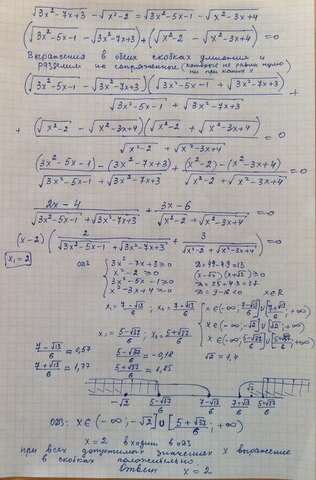 √(3x²-7x+3) - √(x²-2) = √(3x²-5x-1) - √(x²-3x+4)
(√(3x²-5x-1) - √(3x²-7x+3)) + (√(x²-2) - √(x²-3x+4)) = 0
Выражения в обеих скобках умножим и
разделим на сопряженные (которое не равны нулю
ни при каких x
(√(3x²-5x-1) - √(3x²-7x+3))(√(3x²-5x-1) + √(3x²-7x+3)) / (√(3x²-5x-1) + √(3x²-7x+3)) +
+ (√(x²-2) - √(x²-3x+4))(√(x²-2) + √(x²-3x+4)) / (√(x²-2) + √(x²-3x+4)) = 0
((3x²-5x-1) - (3x²-7x+3)) / (√(3x²-5x-1) + √(3x²-7x+3)) + ((x²-2) - (x²-3x+4)) / (√(x²-2) + √(x²-3x+4)) = 0
(2x-4) / (√(3x²-5x-1) + √(3x²-7x+3)) + (3x-6) / (√(x²-2) + √(x²-3x+4)) = 0
(x-2)(2 / (√(3x²-5x-1) + √(3x²-7x+3)) + 3 / (√(x²-2) + √(x²-3x+4))) = 0
x₁=2
ОДЗ
3x²-7x+3 ≥0 D=49-36=13
x²-2 ≥0 (x-√2)(x+√2)≥0
3x²-5x-1 ≥0 D=25+12=37
x²-3x+4 ≥0 D=9-16<0 x∈R
x₁ = (7-√13)/6; x₂ = (7+√13)/6 x∈(-∞; (7-√13)/6]∪[(7+√13)/6; +∞)
x∈(-∞; -√2]∪[√2; +∞)
x₁ = (5-√37)/6; x₂ = (5+√37)/6 x∈(-∞; (5-√37)/6]∪[(5+√37)/6; +∞)
(7-√13)/6 ≈ 0,57 (5-√37)/6 ≈ -0,18 √2 ≈ 1,4
(7+√13)/6 ≈ 1,77 (5+√37)/6 ≈ 1,85
-√2 (5-√37)/6 (7-√13)/6 √2 (7+√13)/6 (5+√37)/6
ОДЗ: x∈(-∞; -√2]∪[(5+√37)/6; +∞)
x=2 входит в ОДЗ
при всех допустимых значениях x выражение
в скобках положительно
Ответ x=2